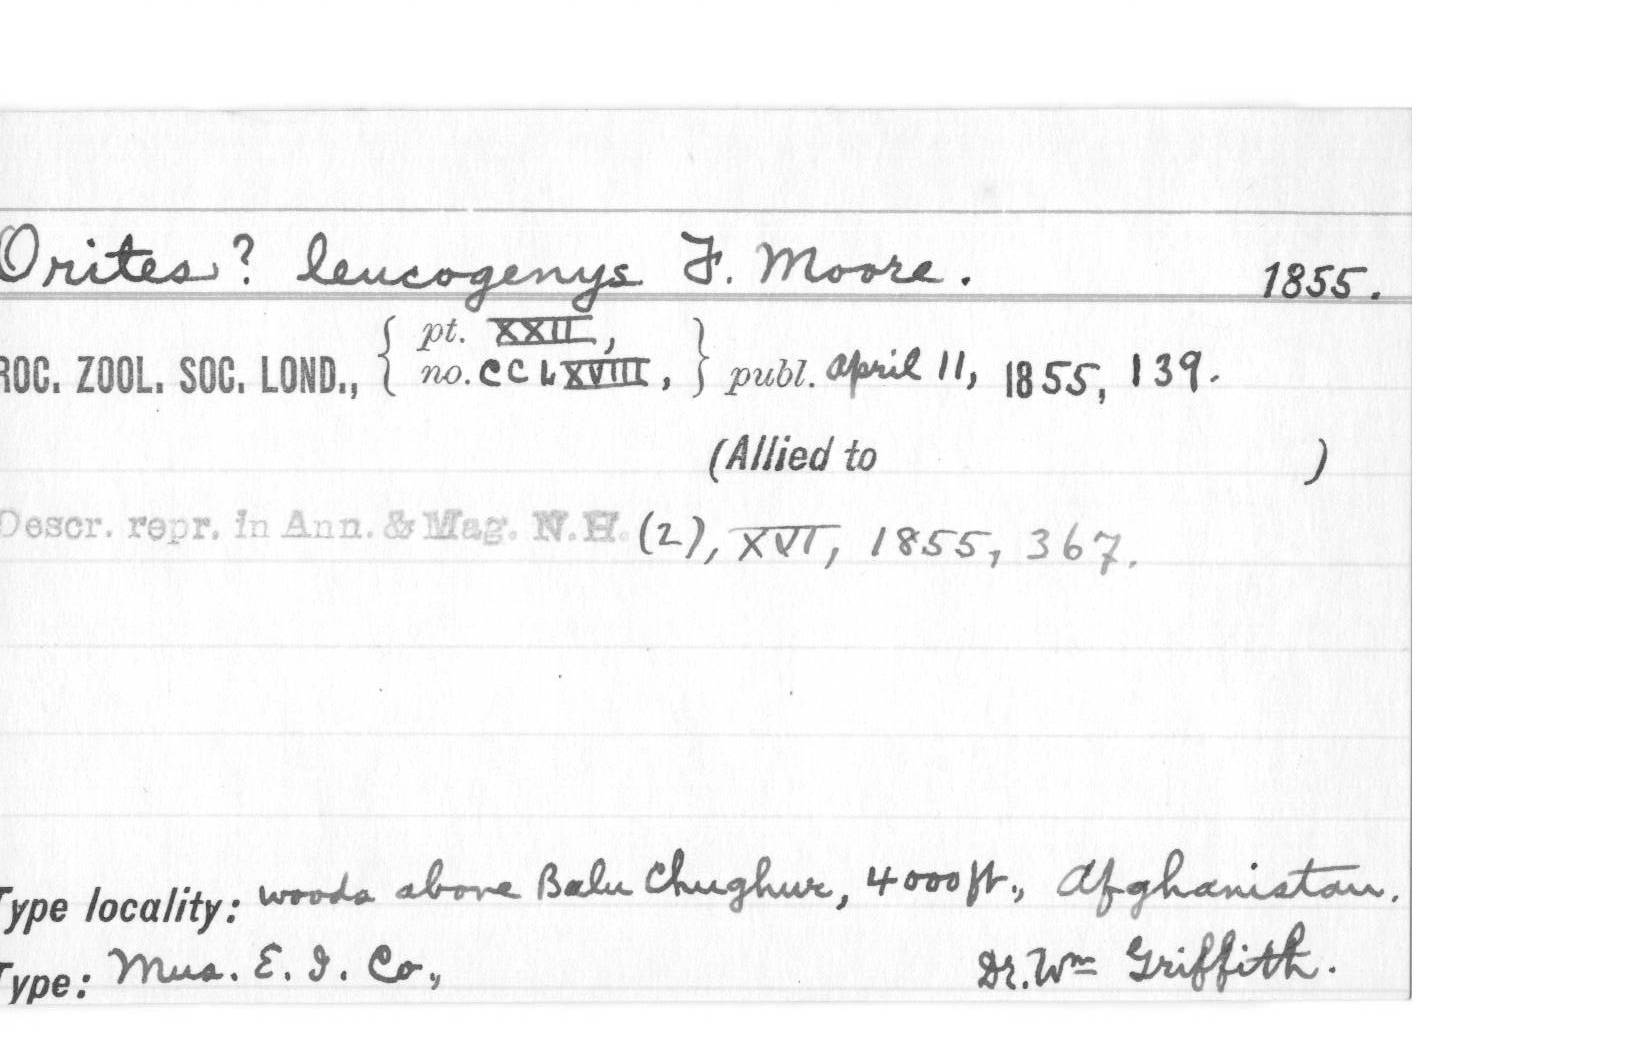 Orites? leucogenys F. Moore. 1855.
ROC. ZOOL. SOC. LOND., { pt. XXII, no. CCLXVIII, } publ. April 11, 1855, 139.
(Allied to )
Descr. repr. in Ann. & Mag. N.H. (2), XVI, 1855, 367.
Type locality: woods above Balu Chughur, 4000 ft., Afghanistan.
Type: Mus. E. I. Co., Dr. Wm Griffith.